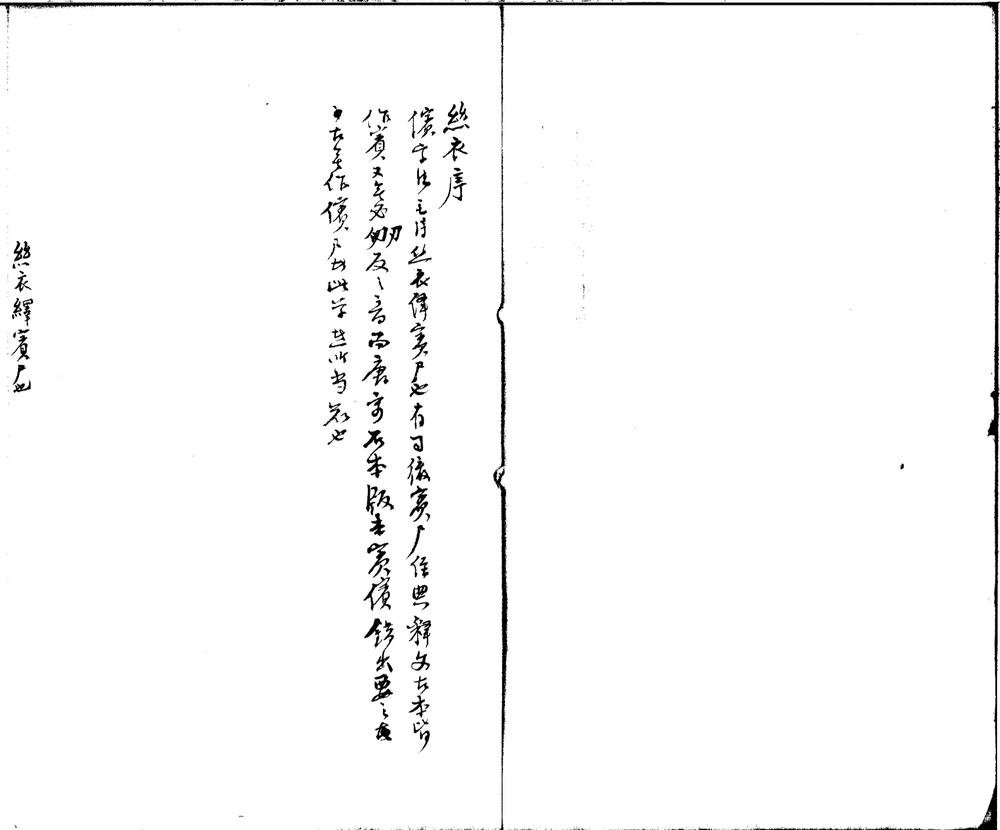 絲衣序
儐字法毛詩絲衣繹賓尸也有司徹賓尸經典釋文古本皆
作賓又無必刃反之音而唐宋石本版本賓儐錯出要之
古無作儐尸此學者所當知也
絲衣繹賓尸也